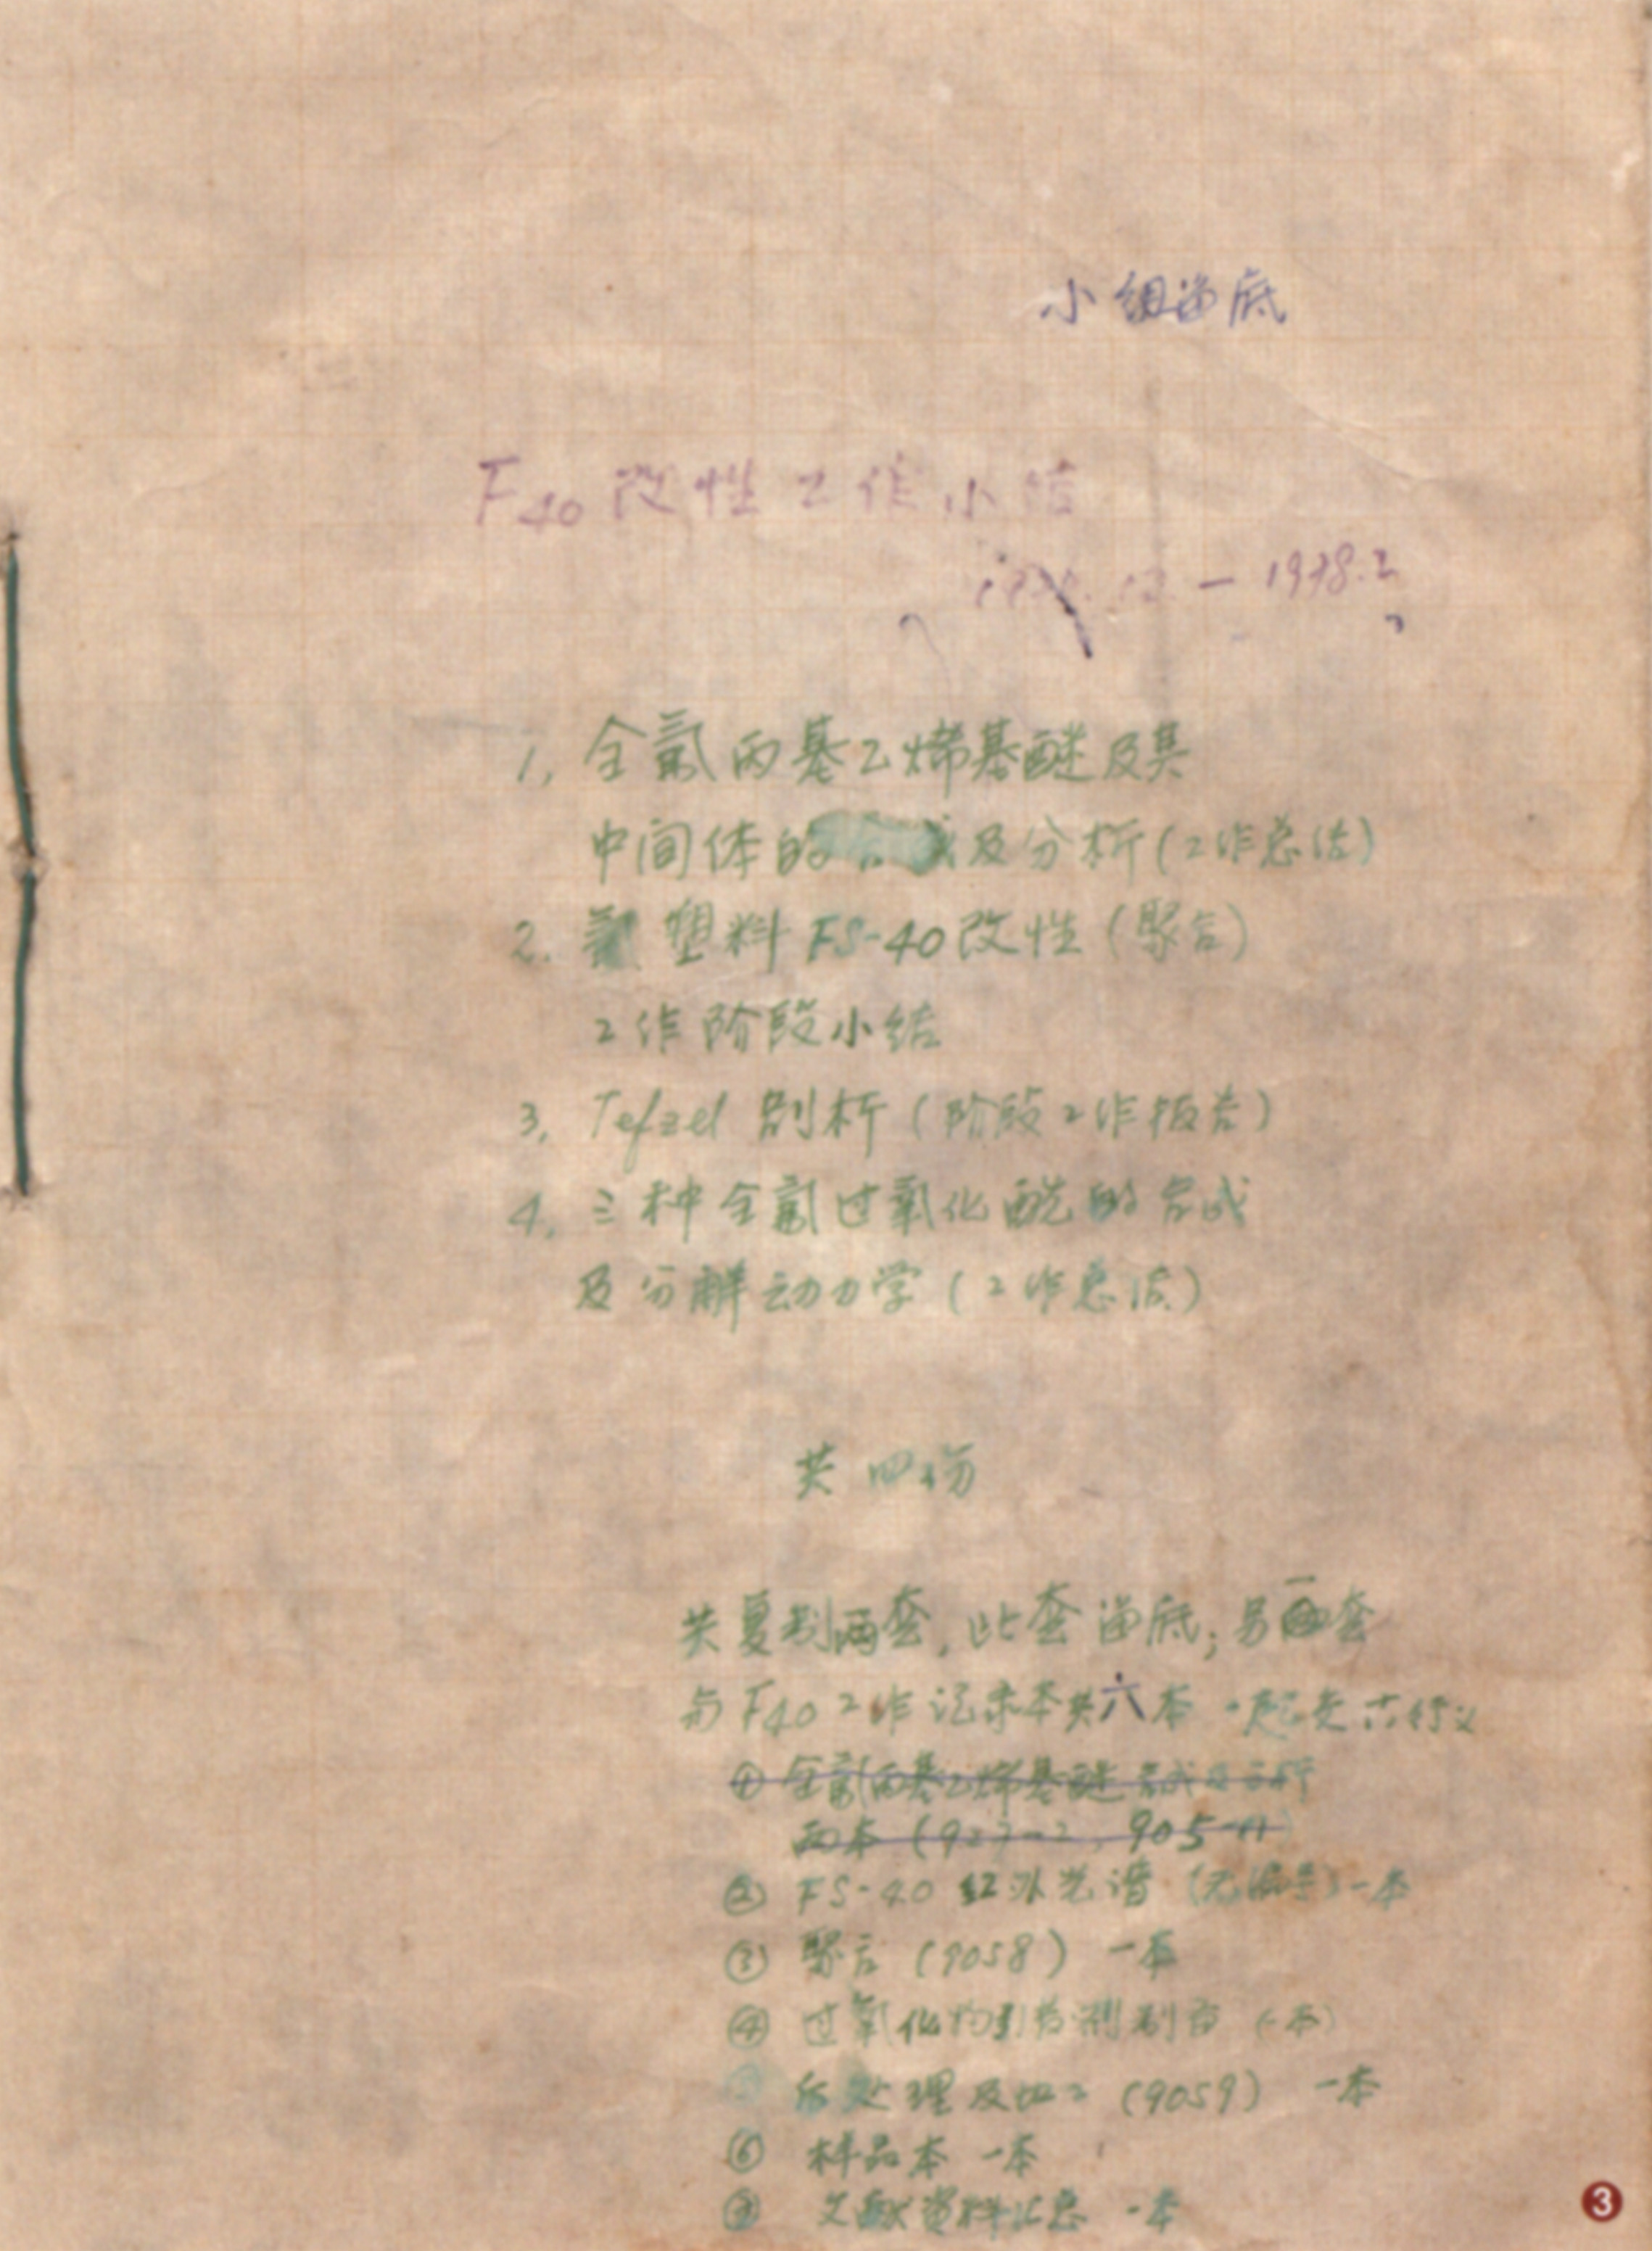 小组留底
F40改性工作小结
— 1978.2
1, 全氟丙基乙烯基醚及其
中间体的合成及分析(工作总结)
2. 氟塑料FS-40改性(聚合)
工作阶段小结
3, Tefzel 剖析(阶段工作报告)
4, 三种全氟过氧化酰的合成
及分解动力学(工作总结)
共四份
共复制两套,此套留底;另一套
与F40工作记录本共六本一起交
① 全氟丙基乙烯基醚合成及分析
两本( 905
② FS-40 红外光谱(无编号)一本
③ 聚合(9058) 一本
④ 过氧化物引发剂制备(一本)
后处理及加工(9059) 一本
⑥ 样品本 一本
⑦ 文献资料汇总 一本
3